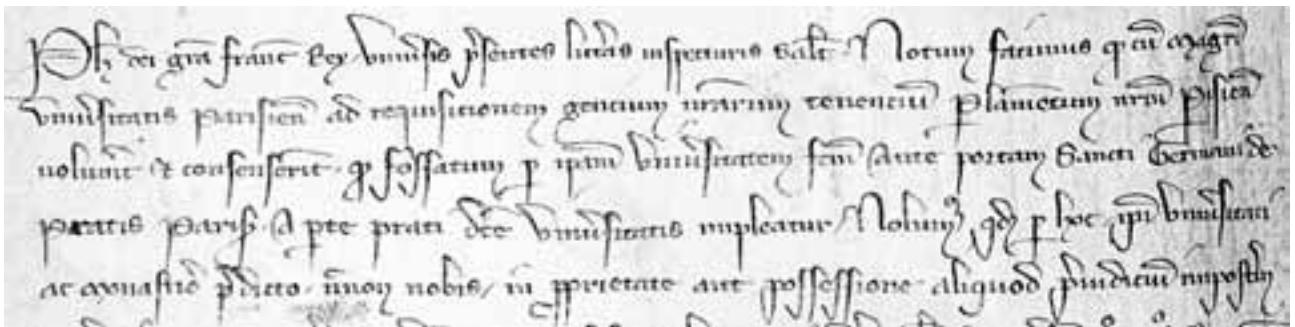 Ph̃ dei gr̃a franc̃ Rex Vniu̾sis p̃sentes litt̾as inspecturis Salt̃. Notum facimus q̃ cũ magr̃i
Vniu̾sitatis Parisien̄ ad requisicionem gencium nr̃arum tenenciũ Parlametum nr̃m Parisien̄
uolueri̾t & consenser̃it q̃ fossatum ꝑ ip̃am Vniu̾sitatem fc̃m Ante portam Sancti Germani de
Pratis Pariẜ. A ꝑte prati dc̃e Vniu̾sitatis impleatur Nolumꝰ qd̃ ꝑ hoc ip̃i Vniu̾sitati
ac monast̾io p̃dicto. nec non nobis in ꝓprietate aut possessione aliquod p̃iudiciũ